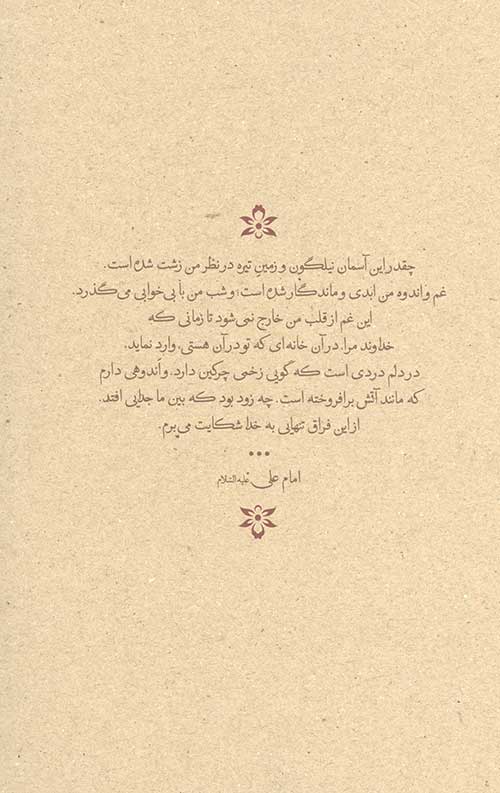 چقدر این آسمان نیلگون و زمینِ تیره در نظر من زشت شده است.
غم و اندوه من ابدی و ماندگار شده است؛ و شب من با بی‌خوابی می‌گذرد.
این غم از قلب من خارج نمی‌شود تا زمانی که
خداوند مرا، در آن خانه‌ای که تو در آن هستی، وارد نماید.
در دلم دردی است که گویی زخمی چرکین دارد. و اندوهی دارم
که مانند آتش برافروخته است. چه زود بود که بین ما جدایی افتد.
از این فراق تنهایی به خدا شکایت می‌برم.
•••
امام علی علیه‌السلام